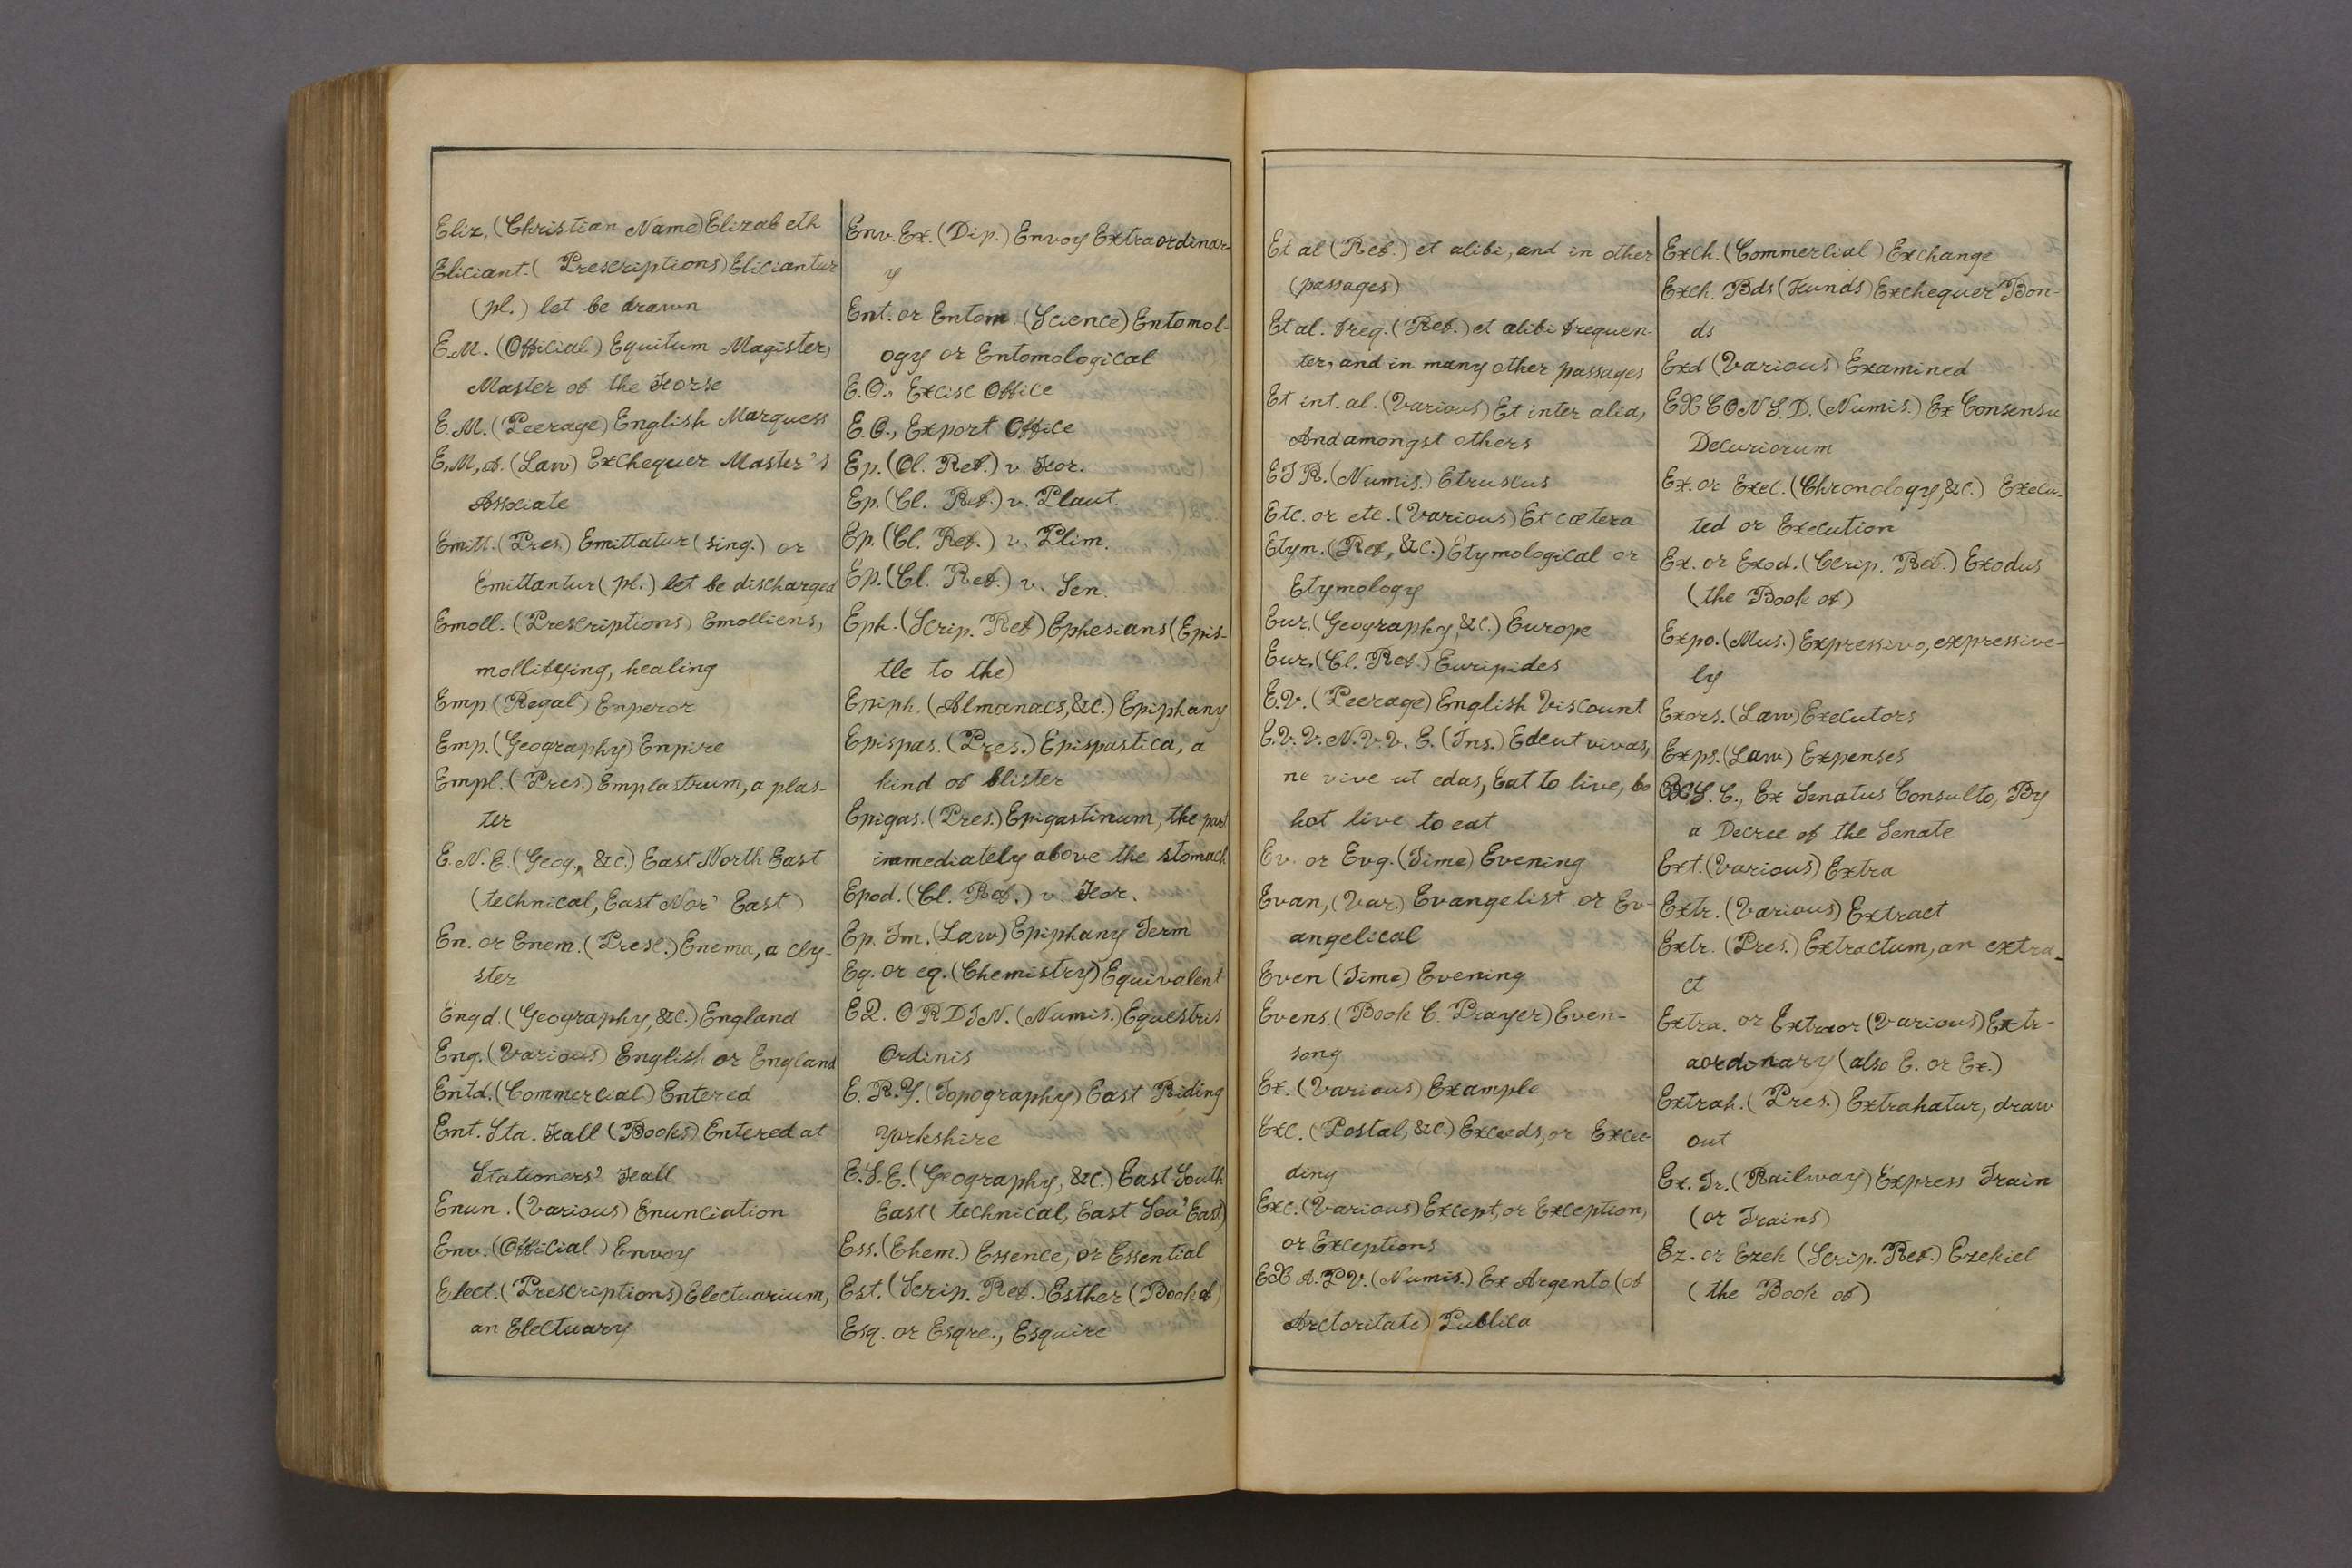 Eliz, (Christian Name) Elizabeth
Eliciant. (Prescriptions) Eliciantur
(pl.) let be drawn
E.M. (Official) Equitum Magister,
Master of the Horse
E.M. (Peerage) English Marquess
E.M,A. (Law) Exchequer Master's
Associate
Emitt. (Pres.) Emittatur (sing.) or
Emittantur (pl.) let be discharged
Emoll. (Prescriptions) Emolliens,
mollifying, healing
Emp. (Regal) Enperor
Emp. (Geography) Enpire
Empl. (Pres.) Emplastrum, a plas-
ter
E.N.E. (Geog., &c.) East North East
(technical, East Nor' East)
En. or Enem. (Presc.) Enema, a cly-
ster
Engd. (Geography, &c.) England
Eng. (Various) English or England
Entd. (Commercial) Entered
Ent. Sta. Hall (Books) Entered at
Stationers' Hall
Enun. (Various) Enunciation
Env. (Official) Envoy
Elect. (Prescriptions) Electuarium,
an Electuary
Env. Ex. (Dip.) Envoy Extraordinar
y
Ent. or Entom. (Science) Entomol-
ogy or Entomological
E.O., Excise Office
E.O., Export Office
Ep. (Cl. Ref.) v. Hor.
Ep. (Cl. Ref.) v. Plaut.
Ep. (Cl. Ref.) v. Plim.
Ep. (Cl. Ref.) v. Sen.
Eph. (Scrip. Ref) Ephesians (Epis-
tle to the)
Epiph. (Almanacs, &c.) Epiphany
Epispas. (Pres.) Epispastica, a
kind of blister
Epigas. (Pres.) Epigastinum, the part
immediately above the stomach
Epod. (Cl. Ref.) v. Hor.
Ep. Tm. (Law) Epiphany Term
Eq. or eq. (Chemistry) Equivalent
EQ. ORDIN. (Numis.) Equestris
Ordinis
E.R.Y. (Topography) East Riding
Yorkshire
E.S.E. (Geography, &c.) East South
East (technical, East Sou' East)
Ess. (Chem.) Essence, or Essential
Est. (Scrip. Ref.) Esther (Book of)
Esq. or Esqre., Esquire
Et al (Ref.) et alibi, and in other
(passages)
Et al. freq. (Ref.) et alibi frequen-
ter, and in many other passages
Et int. al. (Various) Et inter alia,
And amongst others
ETR. (Numis.) Etruscus
Etc. or etc. (Various) Et cætera
Etym. (Ref, &c.) Etymological or
Etymology
Eur. (Geography, &c.) Europe
Eur. (Cl. Ref.) Euripides
E.V. (Peerage) English Viscount
E.V.V.N.V.V.E. (Ins.) Edeut vivas,
ne vive ut edas, Eat to live, bo
hot live to eat
Ev. or Evg. (Time) Evening
Evan, (Var.) Evangelist or Ev-
angelical
Even (Time) Evening
Evens. (Book C. Prayer) Even-
song
Ex. (Various) Example
Exc. (Postal, &c.) Exceeds, or Excee-
ding
Exc. (Various) Except, or Exception,
or Exceptions
EX A.PV. (Numis.) Ex Argento (of
Arctoritate) Publica
Exch. (Commercial) Exchange
Exch. Bds (Funds) Exchequer Bon-
ds
Exd (Various) Examined
EX CONS.D. (Numis.) Ex Consensu
Decuriorum
Ex. or Exec. (Chronology, &c.) Execu-
ted or Execution
Ex. or Exod. (Scrip. Ref.) Exodus
(the Book of)
Expo. (Mus.) Expressivo, expressive-
ly
Exors. (Law) Executors
Exps. (Law) Expenses
EX S.C., Ex Senatus Consulto, By
a Decree of the Senate
Ext. (Various) Extra
Extr. (Various) Extract
Extr. (Pres.) Extractum, an extra-
ct
Extra. or Extraor (Various) Extr-
aordinary (also E. or Ex.)
Extrah. (Pres.) Extrahatur, draw
out
Ex. Tr. (Railway) Express Train
(or Trains)
Ez. or Ezek (Scrip. Ref.) Ezekiel
(the Book of)